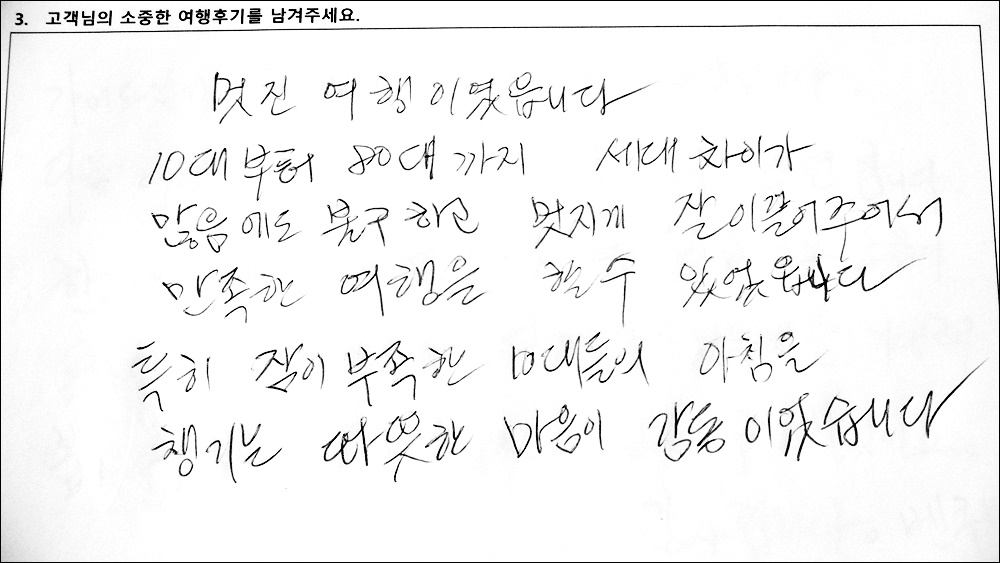 3. 고객님의 소중한 여행후기를 남겨주세요.
멋진 여행이였읍니다
10대부터 80대까지 세대차이가
많음에도 불구하고 멋지게 잘이끌어주어서
만족한 여행을 할수 있었읍니다
특히 잠이 부족한 10대들의 아침을
챙기는 따뜻한 마음이 감동이었습니다